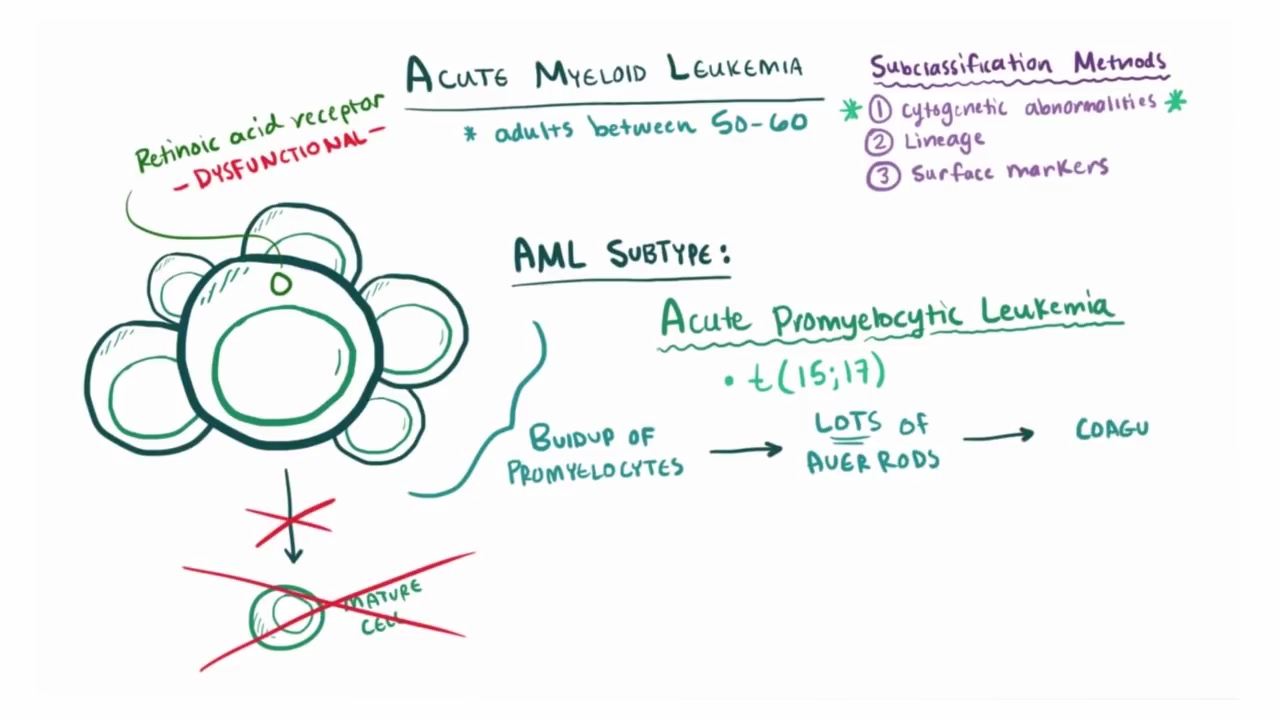 ACUTE MYELOID LEUKEMIA
* adults between 50-60
Subclassification Methods
* ① cytogenetic abnormalities *
② Lineage
③ Surface markers
Retinoic acid receptor
- DYSFUNCTIONAL -
AML SUBTYPE:
Acute Promyelocytic Leukemia
• t(15;17)
BUIDUP OF
PROMYELOCYTES
LOTS OF
AUER RODS
COAGU
MATURE
CELL